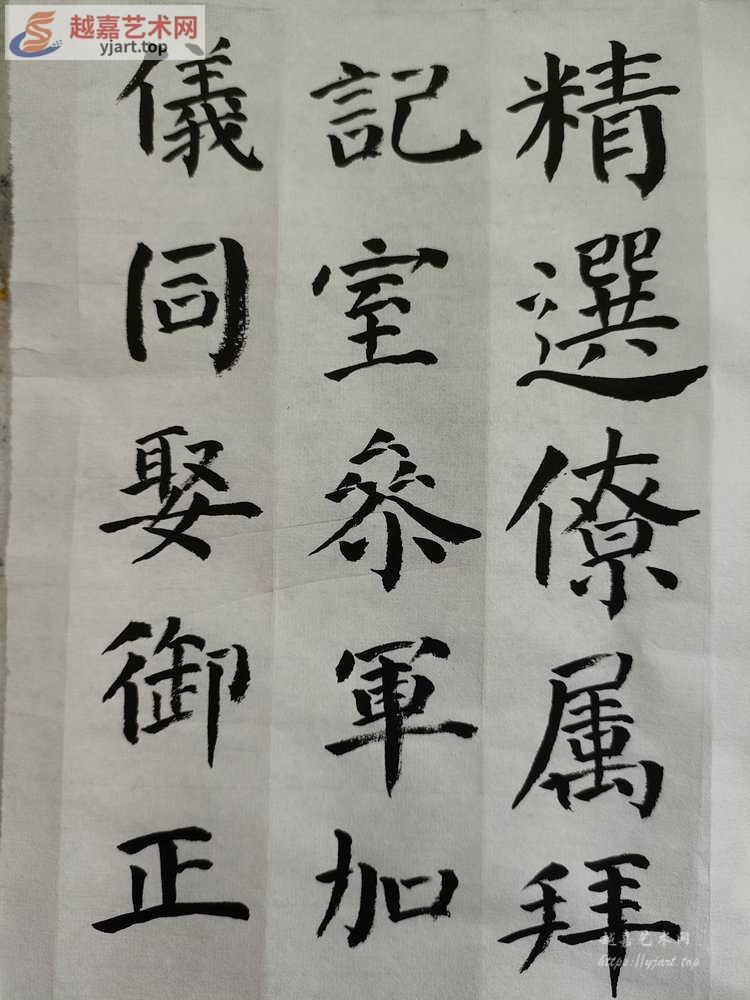 精選僚属拜
記室叅軍加
儀同娶御正
越嘉艺术网
yjart.top
越嘉艺术网
https://yjart.top